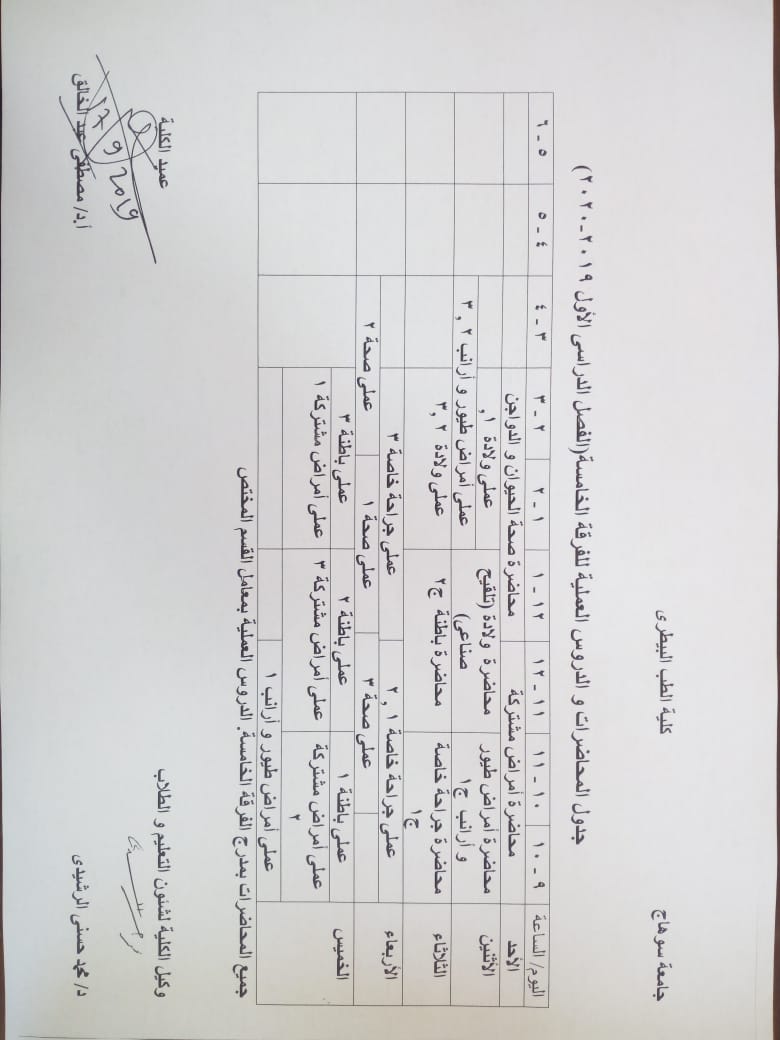 جامعة سوهاج
كلية الطب البيطرى
جدول المحاضرات و الدروس العملية للفرقة الخامسة(الفصل الدراسى الأول ٢٠١٩-٢٠٢٠)
اليوم/ الساعة ٩ - ١٠ ١٠ - ١١ ١١ - ١٢ ١٢ - ١ ١ - ٢ ٢ - ٣ ٣ - ٤ ٤ - ٥ ٥ - ٦
الأحد محاضرة أمراض مشتركة محاضرة صحة الحيوان و الدواجن
الأثنين محاضرة أمراض طيور محاضرة ولادة (تلقيح عملى ولادة ١,
و أرانب ج١ صناعى) عملى أمراض طيور و أرانب ٢ , ٣
الثلاثاء محاضرة جراحة خاصة محاضرة باطنة ج٢ عملى ولادة ٢ , ٣
ج١
الأربعاء عملى جراحة خاصة ١ , ٢ عملى جراحة خاصة ٣
عملى صحة ٣ عملى صحة ١ عملى صحة ٢
الخميس عملى باطنة ١ عملى باطنة ٢ عملى باطنة ٣
عملى أمراض مشتركة عملى أمراض مشتركة ٣ عملى أمراض مشتركة ١
٢
عملى أمراض طيور و أرانب ١
جميع المحاضرات بمدرج الفرقة الخامسة. الدروس العملية بمعامل القسم المختص
وكيل الكلية لشئون التعليم و الطلاب
عميد الكلية
17/9/2019
د/ محمد حسنى الرشيدى
أ.د/ مصطفى عبد الخالق